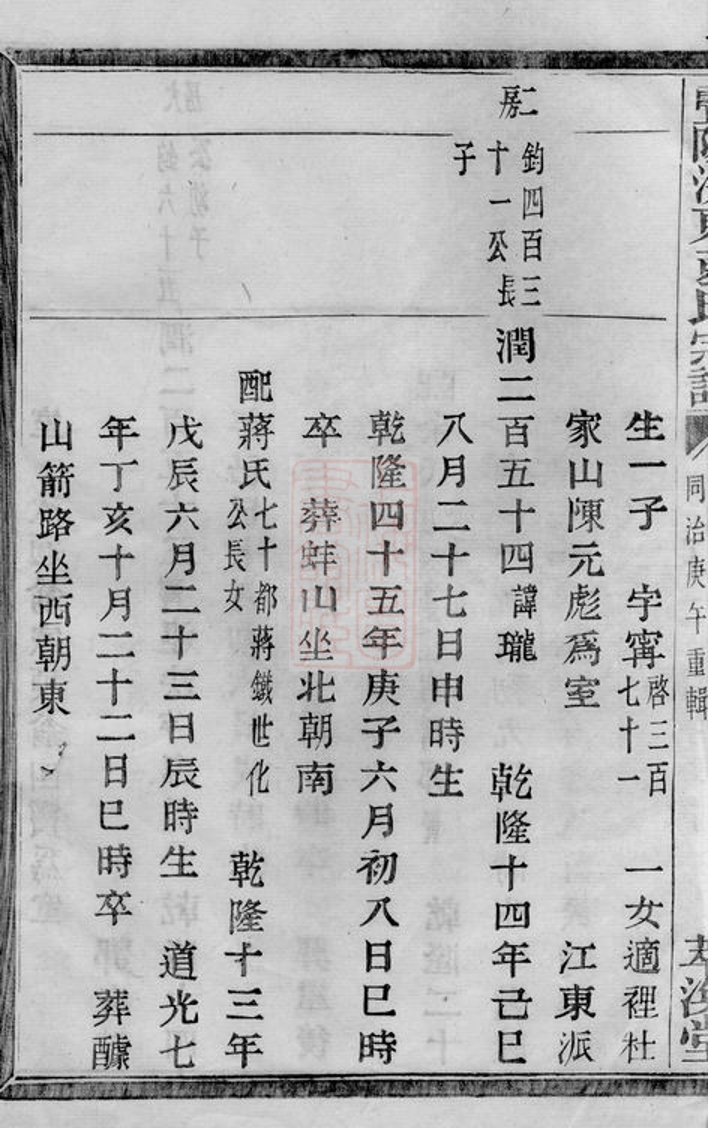 氏宗譜
同治庚午重輯
生一子　字寧啓三百七十一　一女適裡杜
家山陳元彪爲室　江東派
二房
鈞四百三十一公長子
潤二百五十四諱瓏　乾隆十四年己巳
八月二十七日申時生
乾隆四十五年庚子六月初八日巳時
卒　葬蚌山坐北朝南
配蔣氏七十都蔣鐵世化公長女　乾隆十三年
戊辰六月二十三日辰時生　道光七
年丁亥十月二十二日巳時卒　葬醵
山箭路坐西朝東